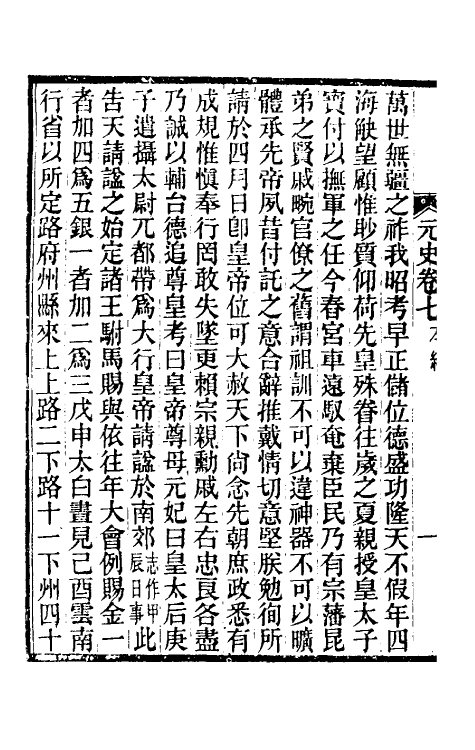 元史卷七 本紀 一
萬世無疆之祚我昭考早正儲位德盛功隆天不假年四
海觖望顧惟眇質仰荷先皇殊眷往歲之夏親授皇太子
寳付以撫軍之任今春宮車遠馭奄棄臣民乃有宗藩昆
弟之賢戚畹官僚之舊謂祖訓不可以違神器不可以曠
體承先帝夙昔付託之意合辭推戴情切意堅朕勉徇所
請於四月日卽皇帝位可大赦天下尙念先朝庶政悉有
成規惟愼奉行罔敢失墜更賴宗親勳戚左右忠良各盡
乃誠以輔台德追尊皇考曰皇帝尊母元妃曰皇太后庚
子遣攝太尉兀都帶爲大行皇帝請諡於南郊志作甲辰日事此
告天請諡之始定諸王駙馬賜與依往年大會例賜金一
者加四爲五銀一者加二爲三戊申太白晝見己酉雲南
行省以所定路府州縣來上上路二下路十一下州四十